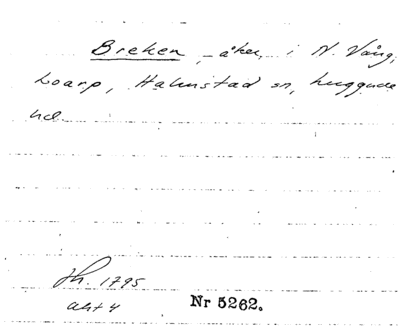 Breken, åker, i N. Vång,
Loarp, Halmstad sn, Luggude
hd
Sk. 1795
akt 4
Nr 5262.